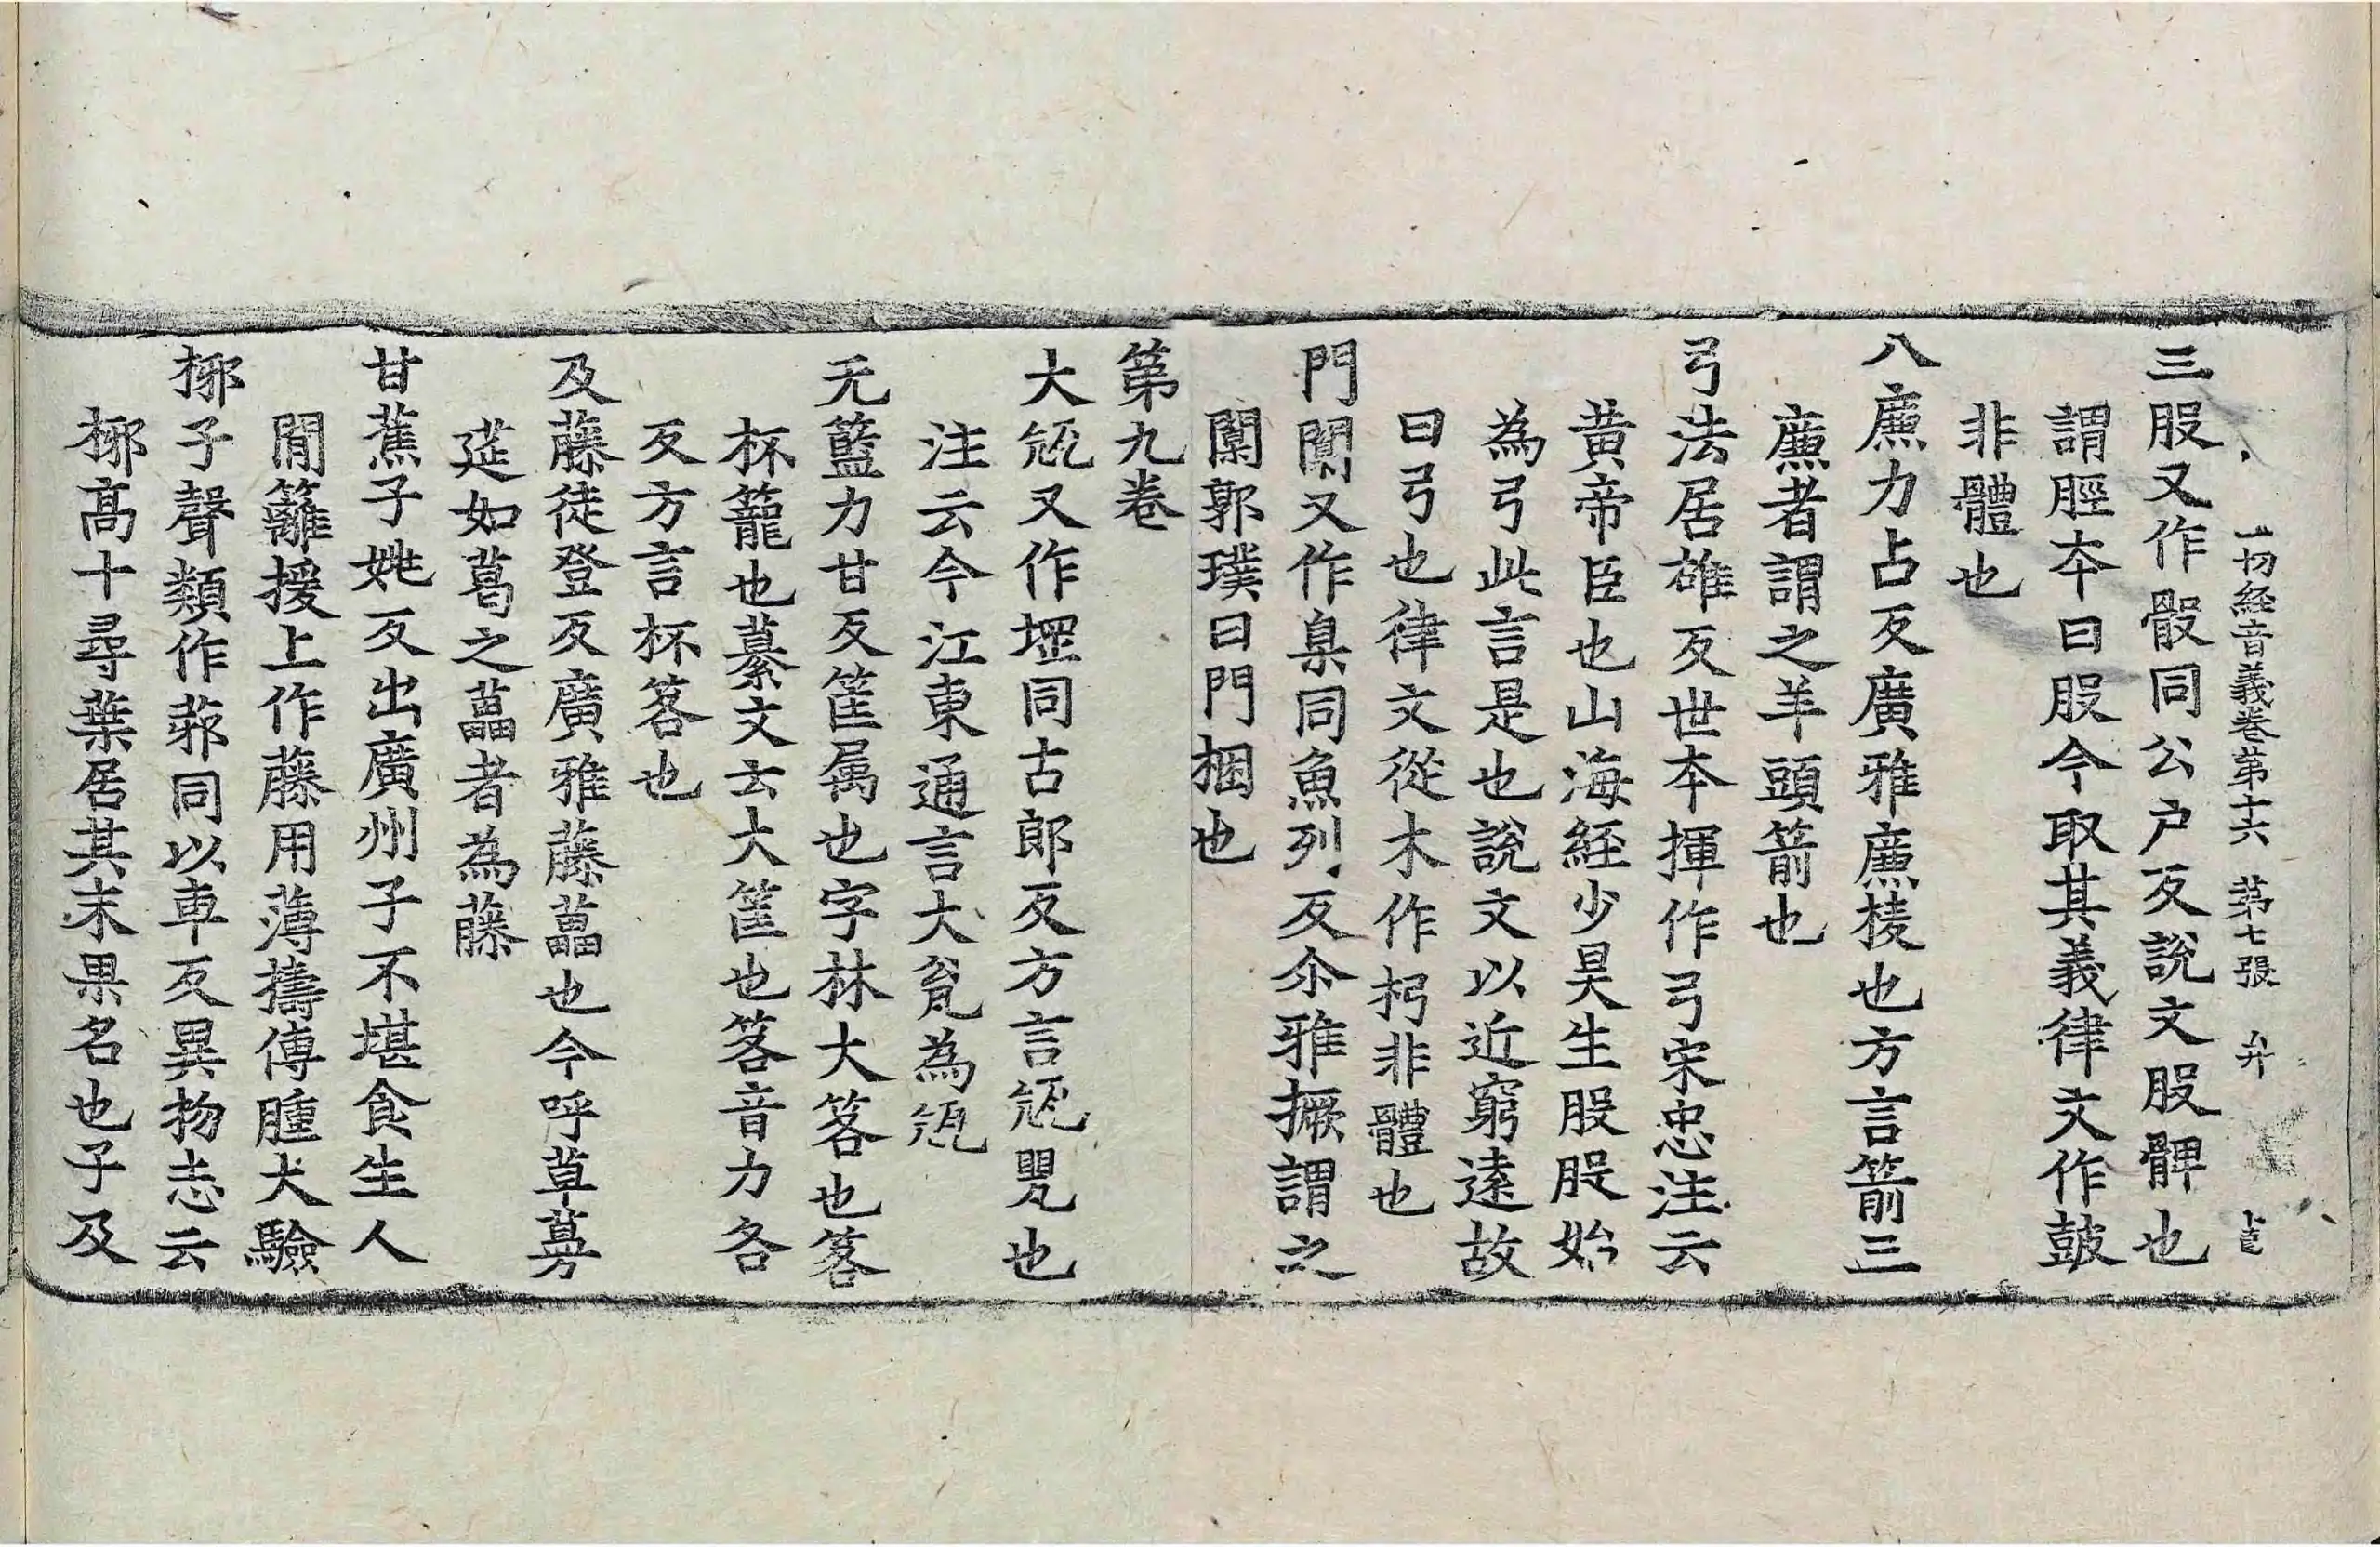 一切経音義卷第十六 第七張 弁
三股又作骰同公户反說文股髀也
謂脛本曰股今取其義律文作鼓
非體也
八廉力占反廣雅廉棱也方言箭三
廉者謂之羊頭箭也
弓法居雄反世本揮作弓宋忠注云
黄帝臣也山海經少昊生股股始
為弓此言是也說文以近窮遠故
曰弓也律文從木作杛非體也
門闑又作臬同魚列反尒雅橛謂之
闑郭璞曰門梱也
第九卷
大瓨又作堽同古郎反方言瓨甖也
注云今江東通言大瓮為瓨
无籃力甘反筐属也字林大笿也笿
杯籠也纂文云大筐也笿音力各
反方言杯笿也
及藤徒登反廣雅藤藟也今呼草蔓
莚如葛之藟者為藤
甘蕉子姚反出廣州子不堪食生人
閒籬援上作藤用薄擣傅腫大驗
梛子聲類作葃同以車反異物志云
梛高十尋葉居其末果名也子及